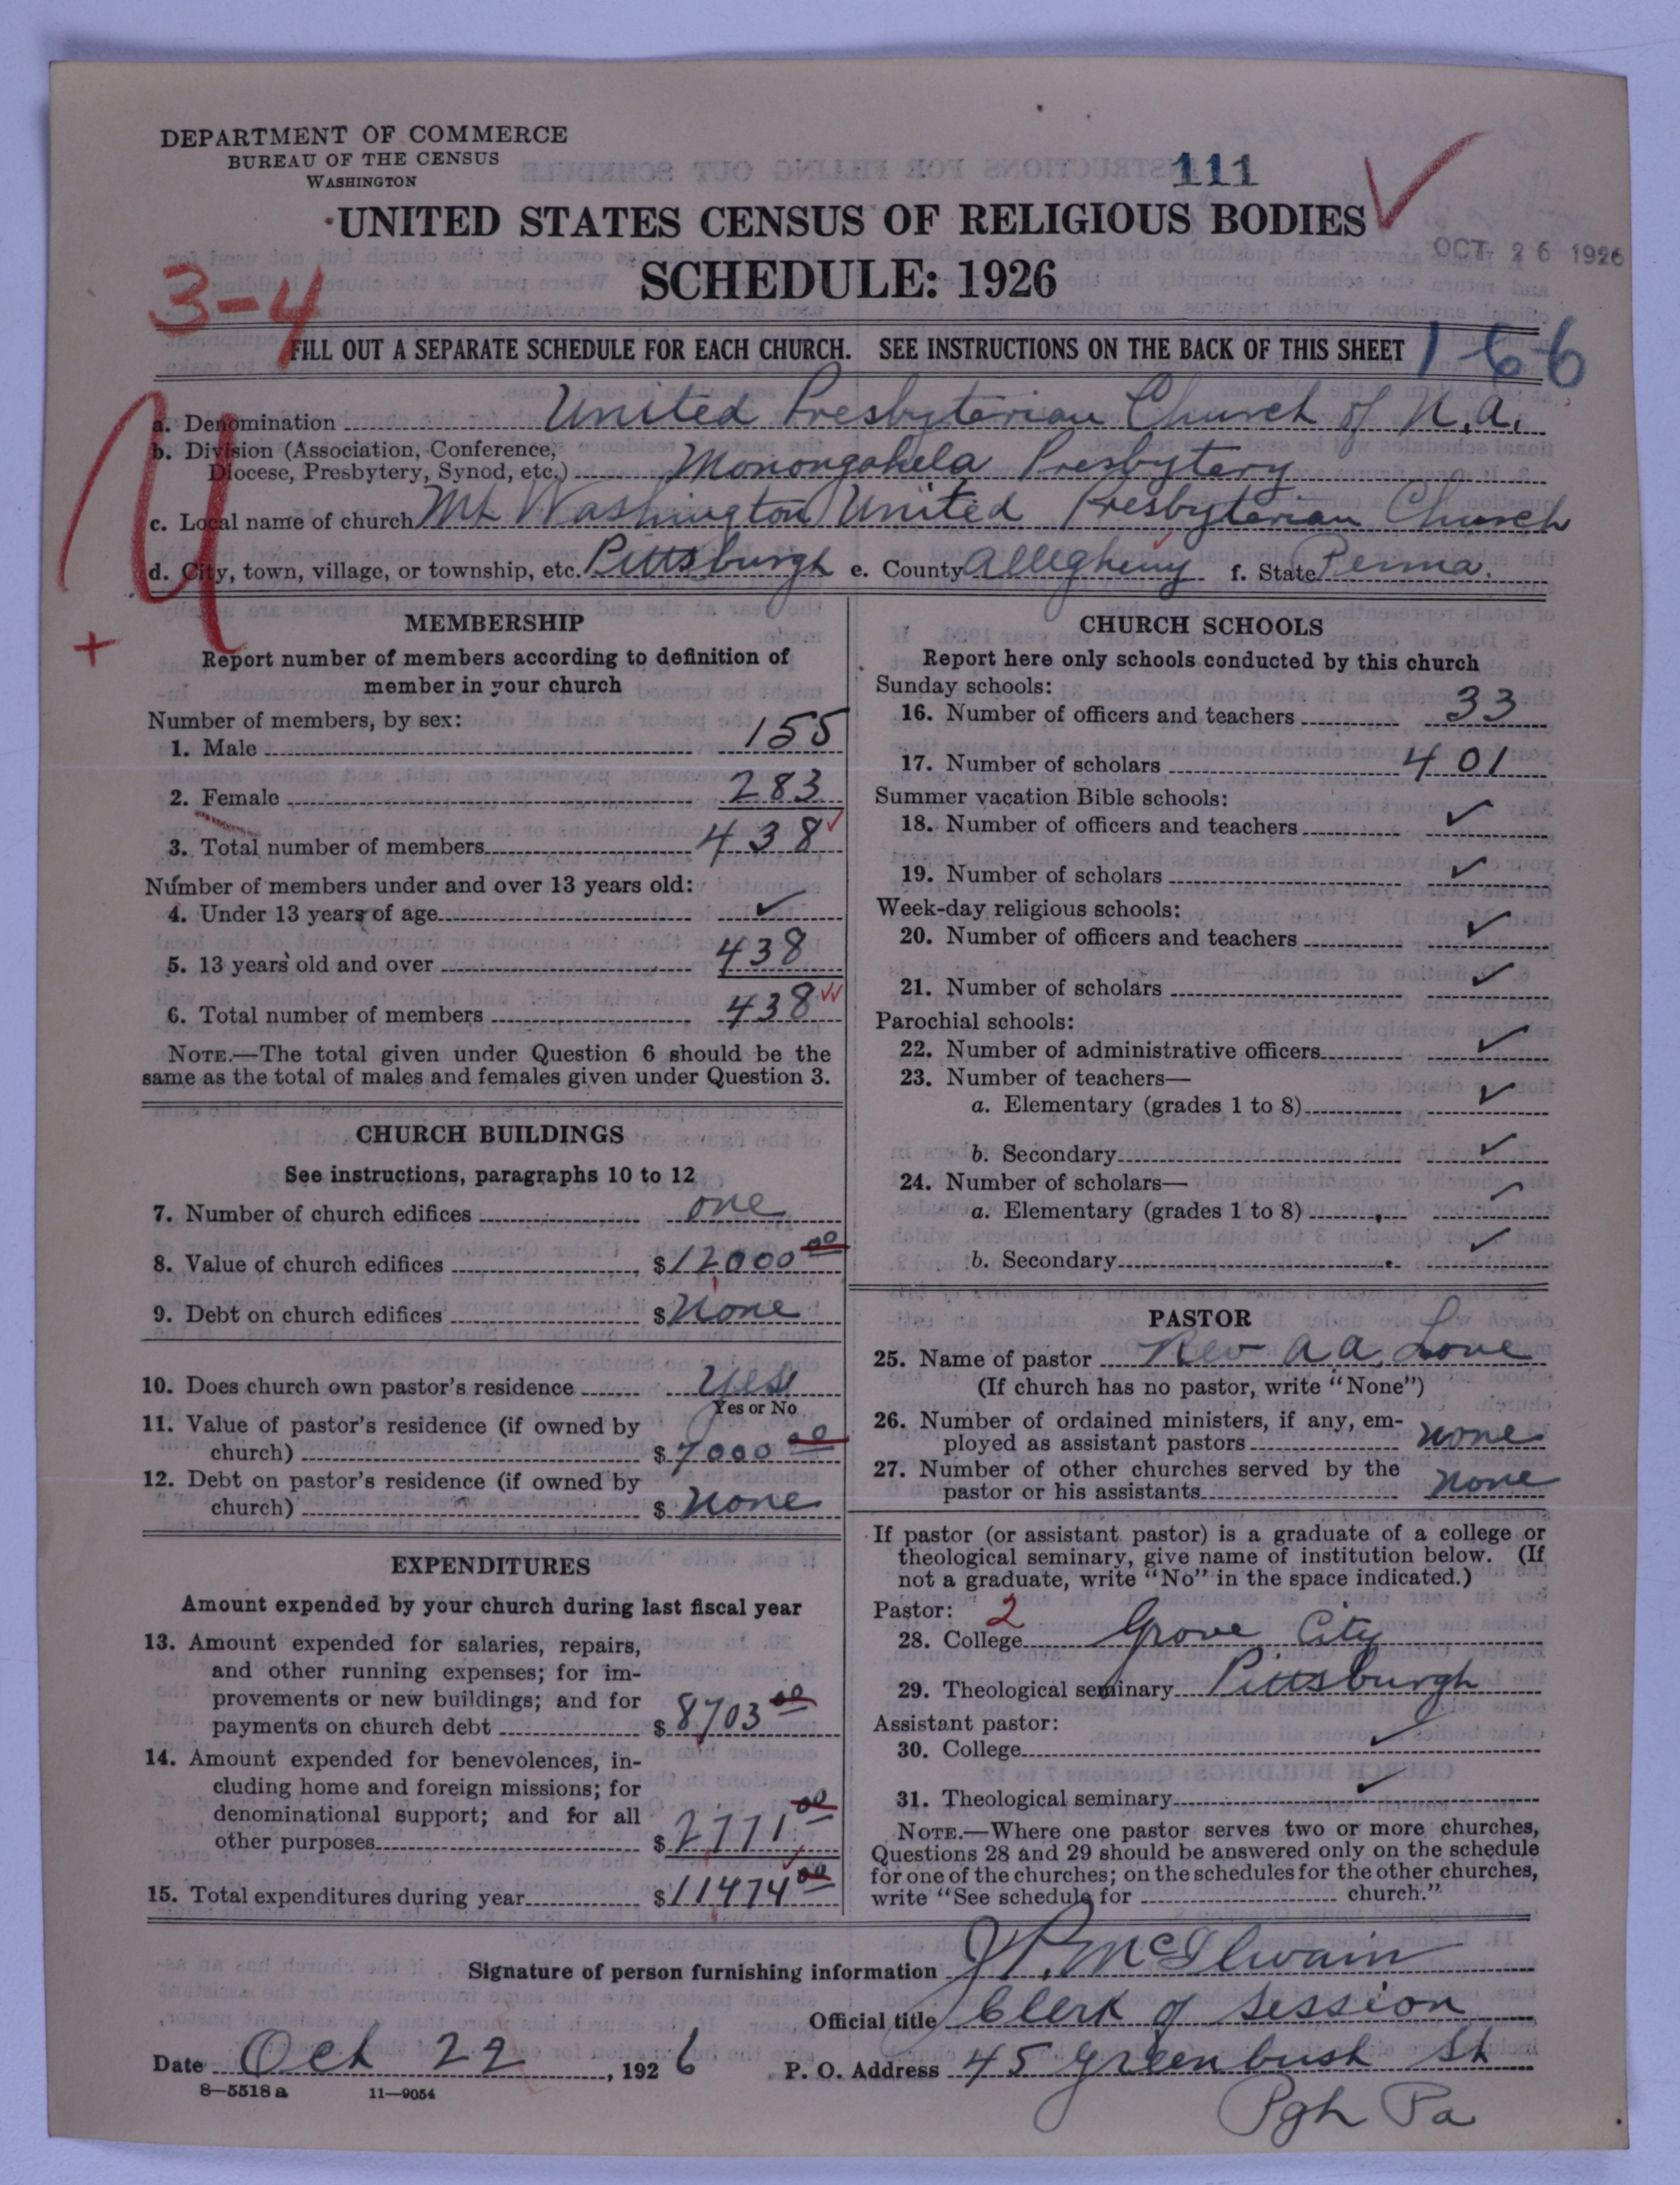 DEPARTMENT OF COMMERCE
BUREAU OF THE CENSUS
WASHINGTON
111
UNITED STATES CENSUS OF RELIGIOUS BODIES
OCT 26 1926
SCHEDULE: 1926
3-4
FILL OUT A SEPARATE SCHEDULE FOR EACH CHURCH. SEE INSTRUCTIONS ON THE BACK OF THIS SHEET
166
a. Denomination United Presbyterian Church of N.A.
b. Division (Association, Conference, Diocese, Presbytery, Synod, etc.) Monongahela Presbytery
c. Local name of church Mt Washington United Presbyterian Church
d. City, town, village, or township, etc. Pittsburgh e. County Allegheny f. State Penna.
+
MEMBERSHIP
Report number of members according to definition of
member in your church
Number of members, by sex:
1. Male 155
2. Female 283
3. Total number of members 438
Number of members under and over 13 years old:
4. Under 13 years of age ✓
5. 13 years old and over 438
6. Total number of members 438
NOTE.—The total given under Question 6 should be the
same as the total of males and females given under Question 3.
CHURCH BUILDINGS
See instructions, paragraphs 10 to 12
7. Number of church edifices one
8. Value of church edifices $12000 00
9. Debt on church edifices $ None
10. Does church own pastor's residence Yes
Yes or No
11. Value of pastor's residence (if owned by
church) $7000 00
12. Debt on pastor's residence (if owned by
church) $ None
EXPENDITURES
Amount expended by your church during last fiscal year
13. Amount expended for salaries, repairs,
and other running expenses; for im-
provements or new buildings; and for
payments on church debt $8703 00
14. Amount expended for benevolences, in-
cluding home and foreign missions; for
denominational support; and for all
other purposes $2771 00
15. Total expenditures during year $11474 00
CHURCH SCHOOLS
Report here only schools conducted by this church
Sunday schools:
16. Number of officers and teachers 33
17. Number of scholars 401
Summer vacation Bible schools:
18. Number of officers and teachers ✓
19. Number of scholars ✓
Week-day religious schools:
20. Number of officers and teachers ✓
21. Number of scholars ✓
Parochial schools:
22. Number of administrative officers ✓
23. Number of teachers—
a. Elementary (grades 1 to 8) ✓
b. Secondary ✓
24. Number of scholars—
a. Elementary (grades 1 to 8) ✓
b. Secondary ✓
PASTOR
25. Name of pastor Rev A.A. Love
(If church has no pastor, write "None")
26. Number of ordained ministers, if any, em-
ployed as assistant pastors none
27. Number of other churches served by the
pastor or his assistants none
If pastor (or assistant pastor) is a graduate of a college or
theological seminary, give name of institution below. (If
not a graduate, write "No" in the space indicated.)
Pastor: 2
28. College Grove City
29. Theological seminary Pittsburgh
Assistant pastor:
30. College ✓
31. Theological seminary ✓
NOTE.—Where one pastor serves two or more churches,
Questions 28 and 29 should be answered only on the schedule
for one of the churches; on the schedules for the other churches,
write "See schedule for church."
Signature of person furnishing information J.P. McIlwain
Official title Clerk of Session
Date Oct 22, 1926 P. O. Address 45 Greenbush St
8—5518 a 11—9054
Pgh Pa